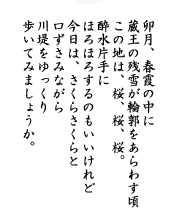 卯月、春霞の中に
蔵王の残雪が輪郭をあらわす頃
この地は、桜、桜、桜。
酔水片手に
ほろほろするのもいいけれど
今日は、さくらさくらと
口ずさみながら
川堤をゆっくり
歩いてみましょうか。